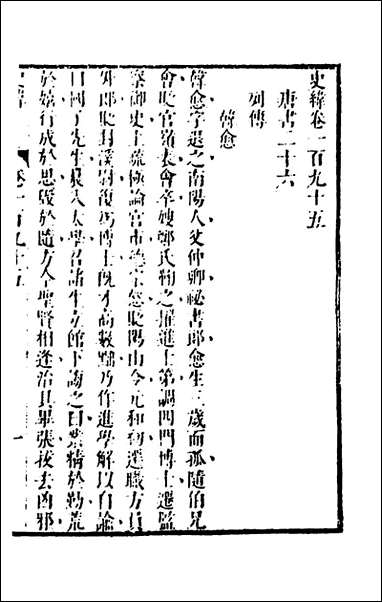 史緯卷一百九十五
唐書二十六
列傳
韓愈
韓愈字退之南陽人父仲卿祕書郎愈生三歲而孤隨伯兄
會貶官嶺表會卒嫂鄭氏鞠之擢進士第調四門博士遷監
察御史上疏極論宮市德宗怒貶陽山令元和初遷職方員
外郎貶封溪尉復為博士既才高數黜乃作進學解以自諭
曰國子先生晨入太學召諸生立館下誨之曰業精於勤荒
於嬉行成於思毀於隨方今聖賢相逢治具畢張拔去凶邪
卷一百九十五 一